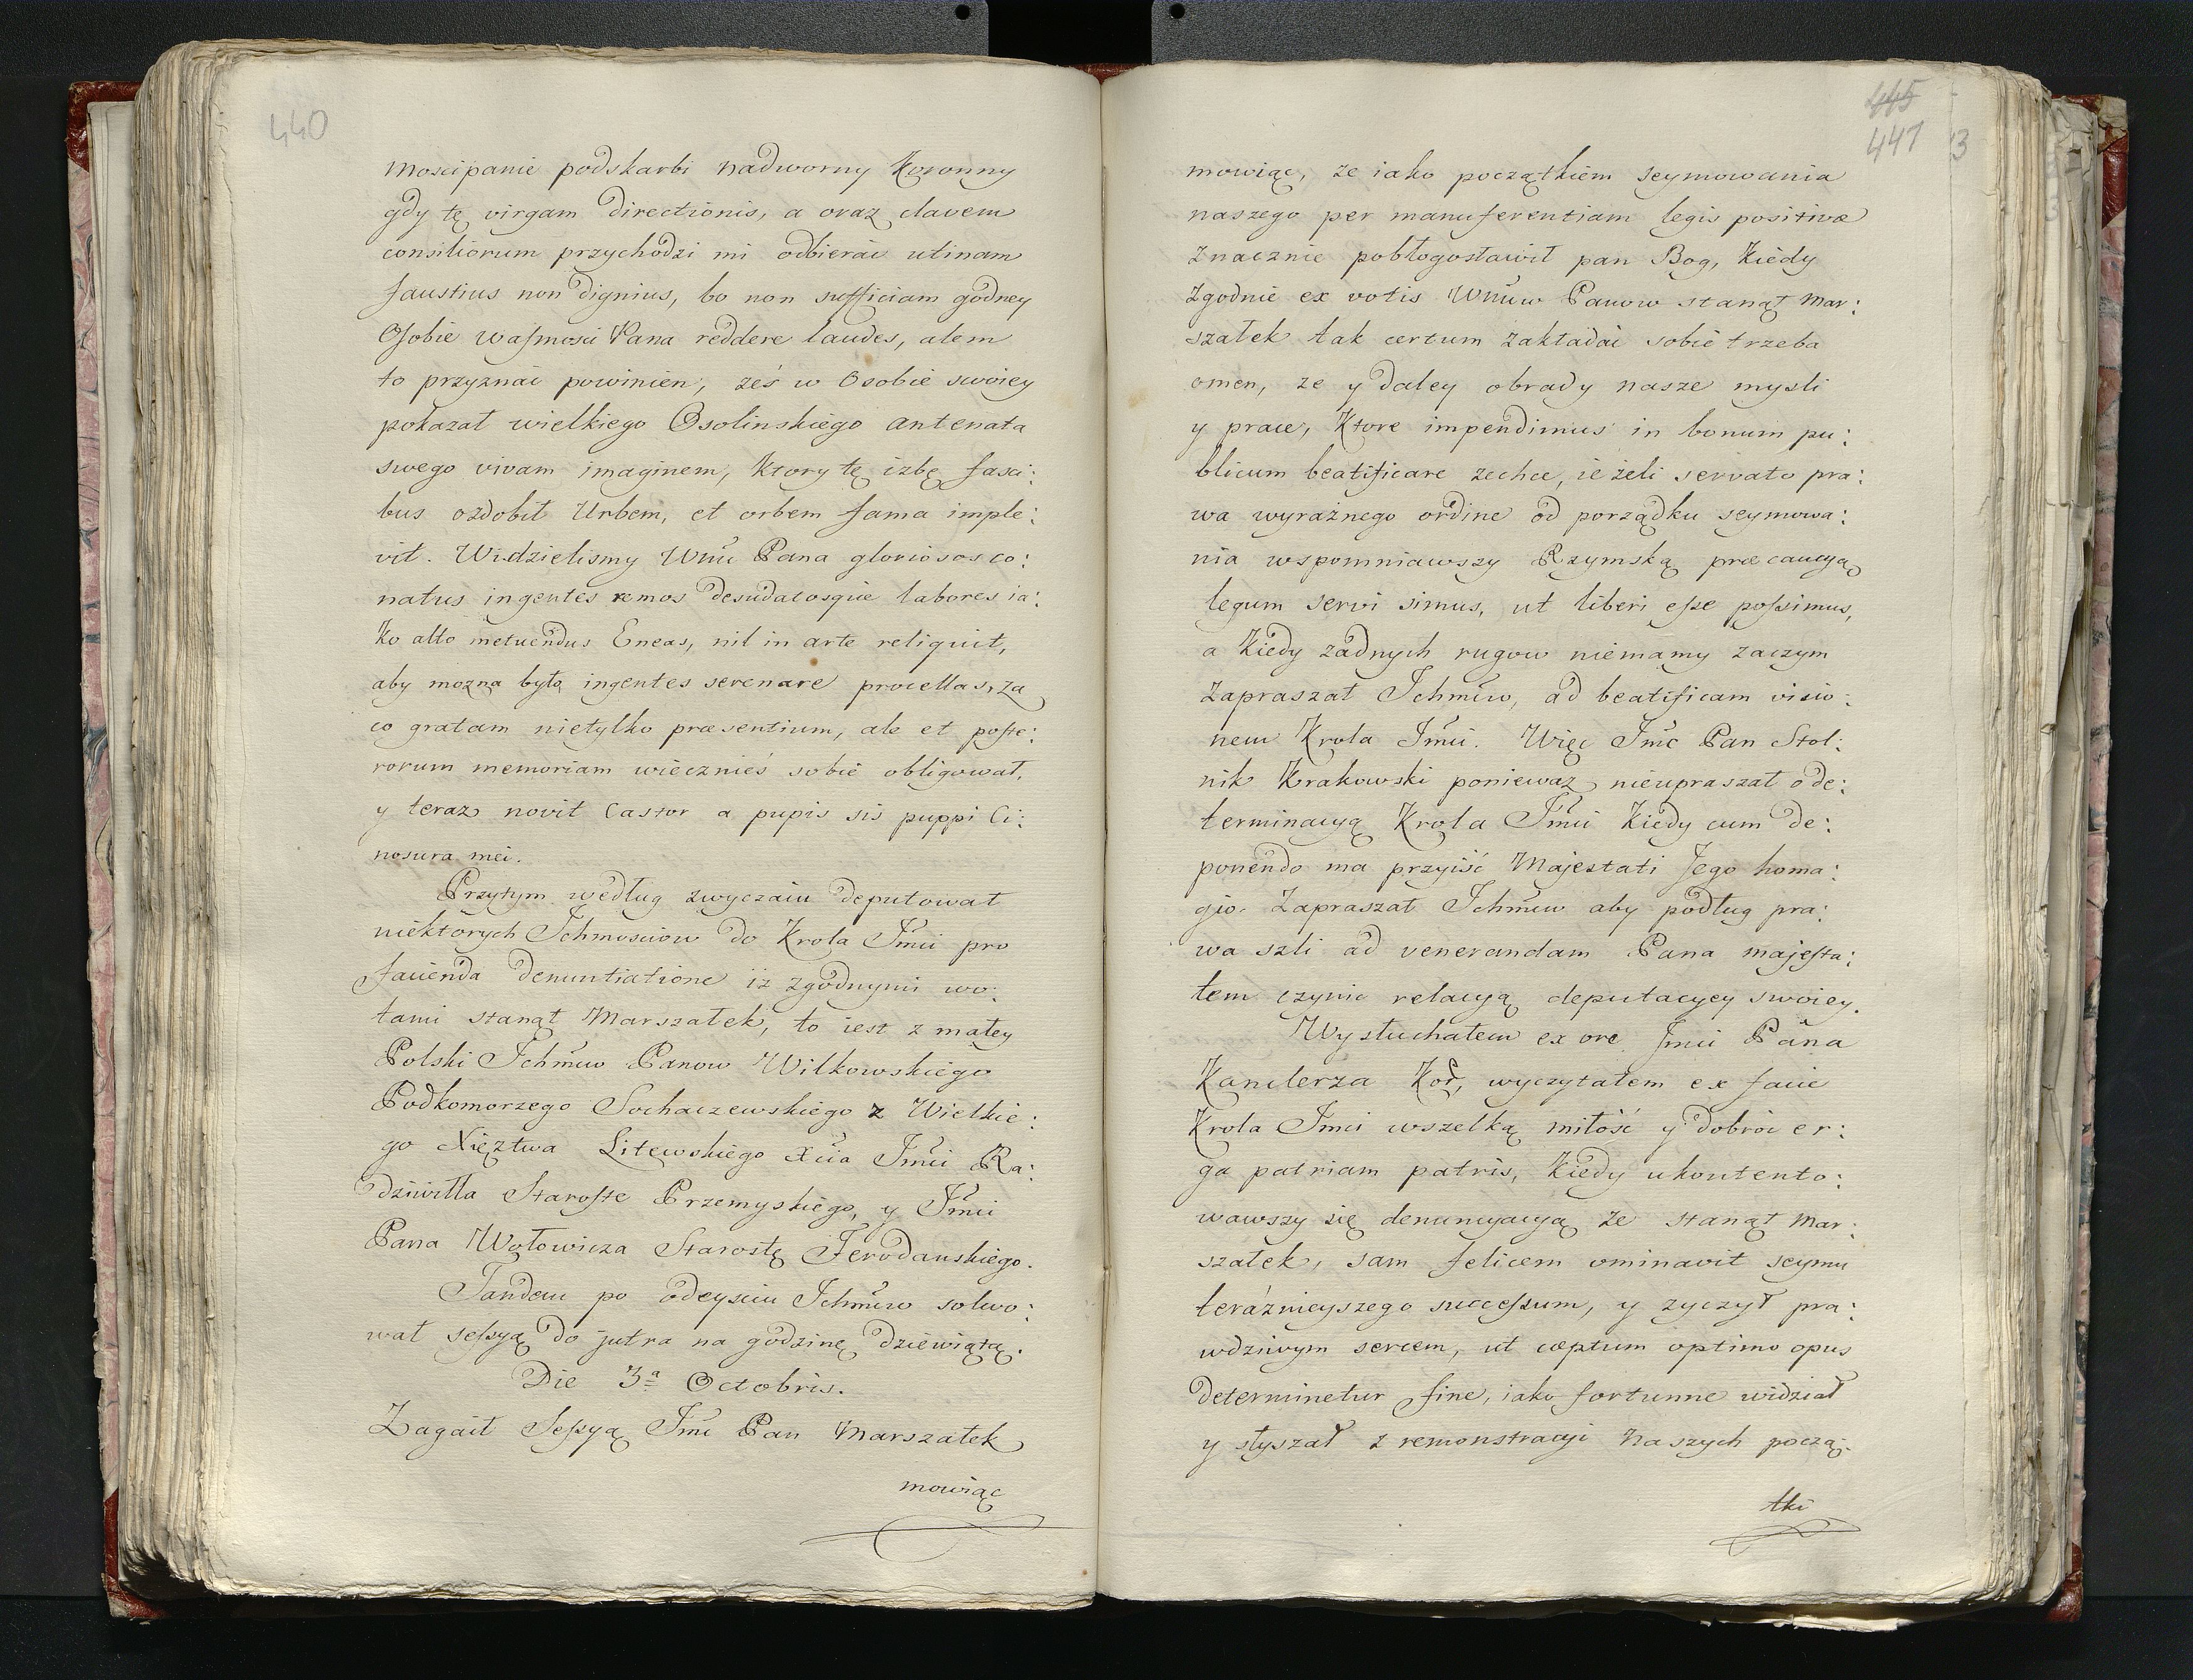 440
Mościpanie podskarbi nadworny Koronny
gdy tę virgam directionis, a oraz clavem
consiliorum przychodzi mi odbierać utinam
faustius non dignius, bo non sufficiam godney
Osobie waſmosci Pana reddere laudes, alem
to przyznać powinien, żeś w Osobie swoiey
pokazał wielkiego Osolinskiego antenata
swego vivam imaginem, ktory tę izbę fasci:
bus ozdobił Urbem, et orbem fama imple:
vit. Widzielismy Wmci Pana gloriosos co:
natus ingentes remos desudatosque labores ia:
ko alto metuendus Eneas, nil in arte reliquit,
aby mozna było ingentes serenare procellas, za
co gratam nietylko præsentium, ale et poste:
rorum memoriam wiecznieś sobie obligował,
y teraz novit Castor a pupis sis puppi Ci:
nosura mei.
Przytym według zwyczaiu deputował
niektorych Ichmosciow do Krola Jmci pro
facienda denuntiatione iż zgodnymi wo:
tami stanął Marszałek, to iest z małey
Polski Ichmciw Panow Wilkowskiego
Podkomorzego Sochaczewskiego z Wielkie:
go Xięztwa Litewskiego Xcia Jmci Ra:
dziwiłła Staroste Przemyskiego, y Jmci
Pana Wołowicza Starostę Ferodanskiego.
Tandem po odeysciu Ichmciw solwo:
wał seſsyą do jutra na godzinę dziewiątą.
Die 3ª Octobris.
Zagaił Seſsyą Jmc Pan Marszałek
mowiąc
445
441
3
mowiąc, że iako początkiem seymowania
naszego per manuferentiam legis positivæ
znacznie pobłogosławił pan Bog, kiedy
zgodnie ex votis Wmciw Panow stanął Mar:
szałek tak certum zakładać sobie trzeba
omen, że y daley obrady nasze mysli
y prace, ktore impendimus in bonum pu:
blicum beatificare zechce, ieżeli servato pra:
wa wyraźnego ordine od porządku seymowa:
nia wspomniawszy Rzymską præcaucyą
legum servi simus, ut liberi eſse poſsimus,
a kiedy żadnych rugow niemamy zaczym
zapraszał Ichmciw, ad beatificam visio:
nem Krola Jmci. Więc Jmc Pan Stol:
nik Krakowski ponieważ nieupraszał o de:
terminacyą Krola Jmci kiedy cum de:
ponendo ma przyiść Majestati Jego homa:
gio. Zapraszał Ichmciw aby podług pra:
wa szli ad venerandam Pana majesta:
tem czynic relacyą deputacyey swoiey.
Wysłuchałem ex ore Jmci Pana
Kanclerza Kor, wyczytałem ex facie
Krola Jmci wszelką miłość y dobroć er:
ga patriam patris, kiedy ukontento:
wawszy się denuncyacyą że stanął Mar:
szałek, sam felicem ominavit seymu
teraźnieyszego succeſsum, y zyczył pra:
wdziwym sercem, ut cæptum optimo opus
determinetur fine, iako fortunne widział
y słyszał z remonstracyi naszych począ:
tki